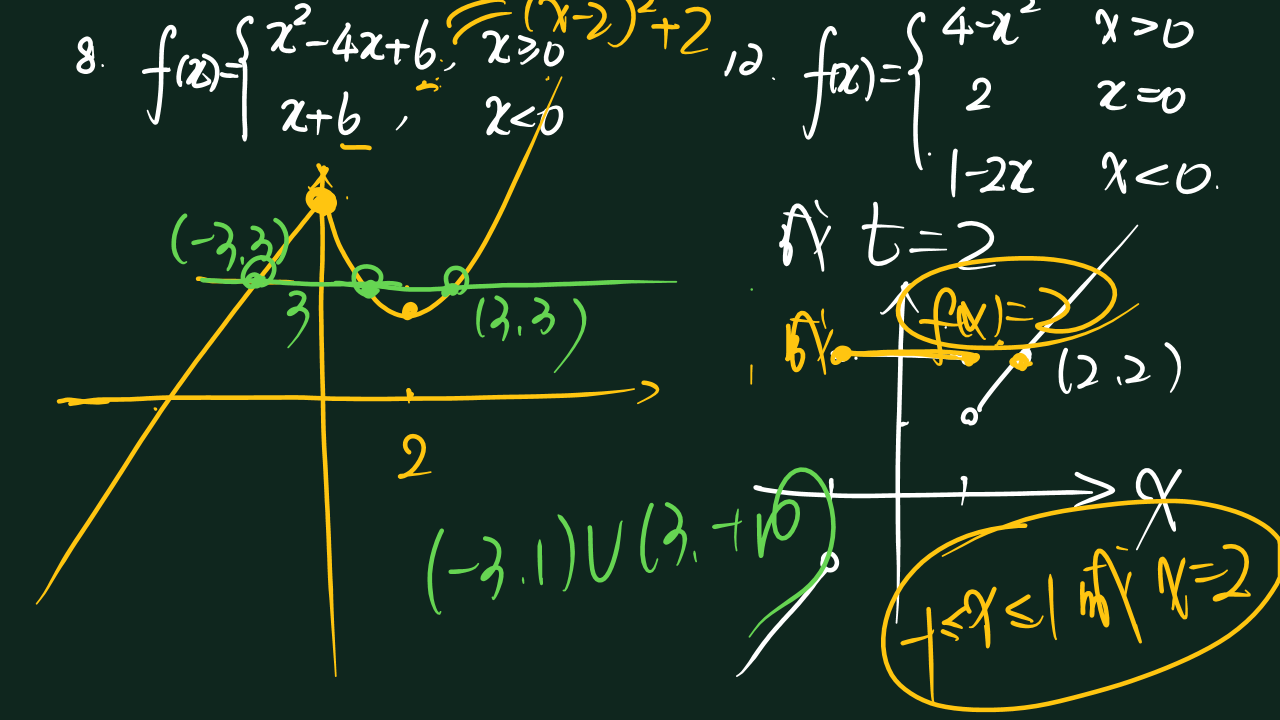 8. f(x)={x²-4x+6, x≥0
(x-2)²+2
x+6, x<0
(-3,3)
3
(3,3)
2
(-3,1)∪(3,+∞)
12. f(x)={4-x² x>0
2 x=0
1-2x x<0.
t=2
f(x)=2
(2,2)
x
-1≤x≤1 x=2